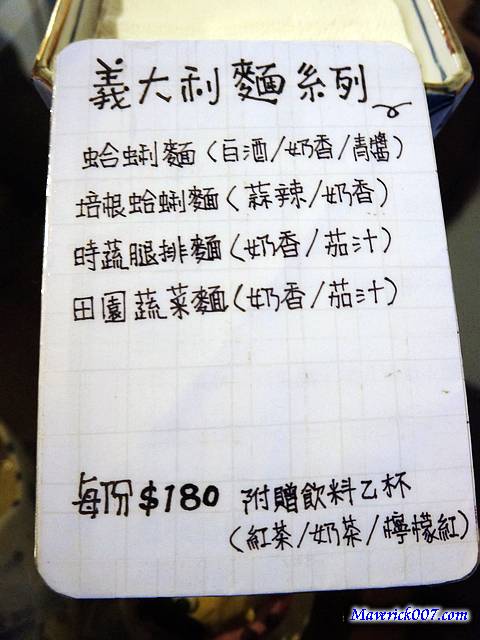 義大利麵系列
蛤蜊麵（白酒/奶香/青醬）
培根蛤蜊麵（蒜辣/奶香）
時蔬腿排麵（奶香/茄汁）
田園蔬菜麵（奶香/茄汁）
每份$180 附贈飲料乙杯
（紅茶/奶茶/檸檬紅）
Maverick007.com